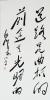 道路是曲折的
前途是光明的